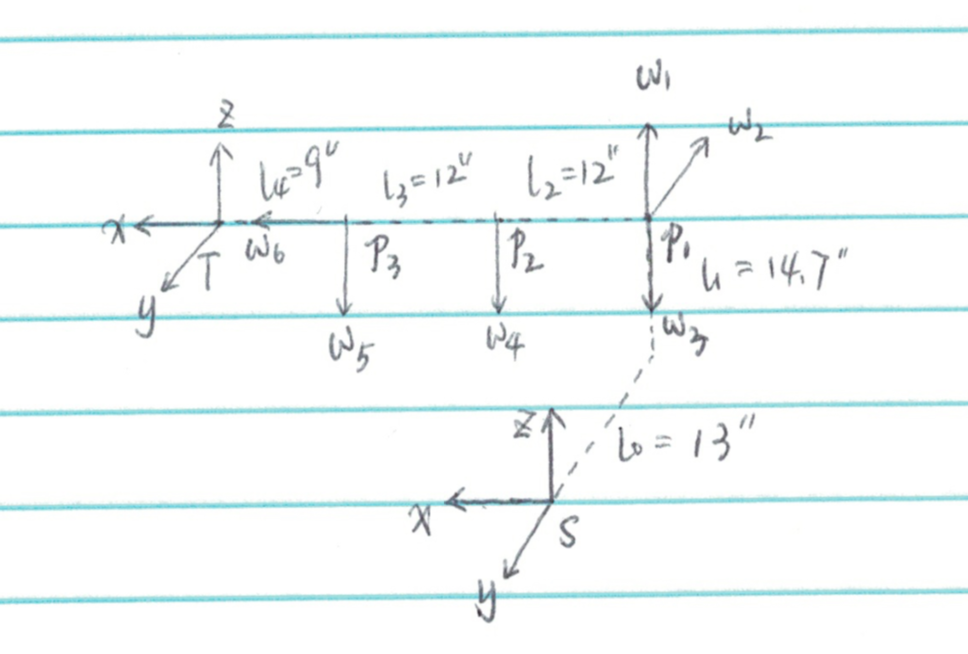 W1
Z W2
l4=9" l3=12" l2=12"
X W6 P3 P2 P1
T l1 = 14.7"
y W5 W4 W3
Z l0 = 13"
X S
y